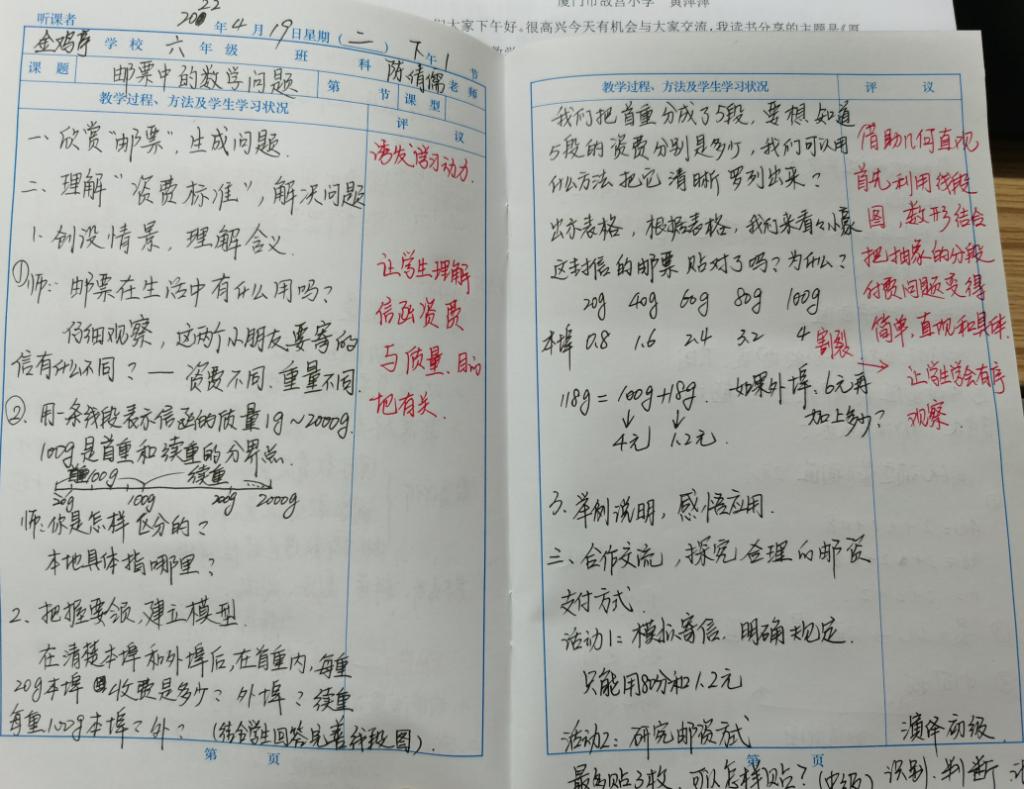 厦门市故宫小学 黄萍萍
们大家下午好。很高兴今天有机会与大家交流,我读书分享的主题是《
听课者
2022年4月19日星期(二)下午1节
金鸡亭学校六年级 班 科 陈倩儒老师
课题 邮票中的数学问题 第 节 课型
教学过程、方法及学生学习状况 评 议
一、欣赏“邮票”,生成问题.
诱发学习动力.
二、理解“资费标准”,解决问题
1. 创设情景,理解含义
①师:邮票在生活中有什么用吗?
让学生理解
信函资费
与质量、目的
地有关.
仔细观察,这两个小朋友要寄的
信有什么不同?— 资费不同.重量不同.
② 用一条线段表示信函的质量1g~2000g.
100g是首重和续重的分界点.
首重100g 续重
20g 100g 200g 2000g
师:你是怎样区分的?
本地具体指哪里?
2、把握要领,建立模型.
在清楚本埠和外埠后,在首重内,每重
20g本埠 收费是多少?外埠?续重
每重100g本埠?外?(结合学生回答完善线段图).
第 页
教学过程、方法及学生学习状况 评 议
我们把首重分成了5段,要想知道
5段的资费分别是多少,我们可以用
什么方法把它清晰罗列出来?
出示表格,根据表格,我们来看看小豪
这封信的邮票贴对了吗?为什么?
20g 40g 60g 80g 100g
本埠 0.8 1.6 2.4 3.2 4
118g = 100g+18g. 如果外埠.6元再
加上多少?
4元 1.2元.
借助几何直观
首先利用线段
图,数形结合
把抽象的分段
付费问题变得
简单,直观和具体.
割裂
让学生学会有序
观察
3. 举例说明,感悟应用.
三、合作交流,探究合理的邮资
支付方式.
活动1:模拟寄信.明确规定.
只能用80分和1.2元
活动2:研究邮资方式 演绎初级.
第 页
最多贴3枚,可以怎样贴?(中级)识别.判断